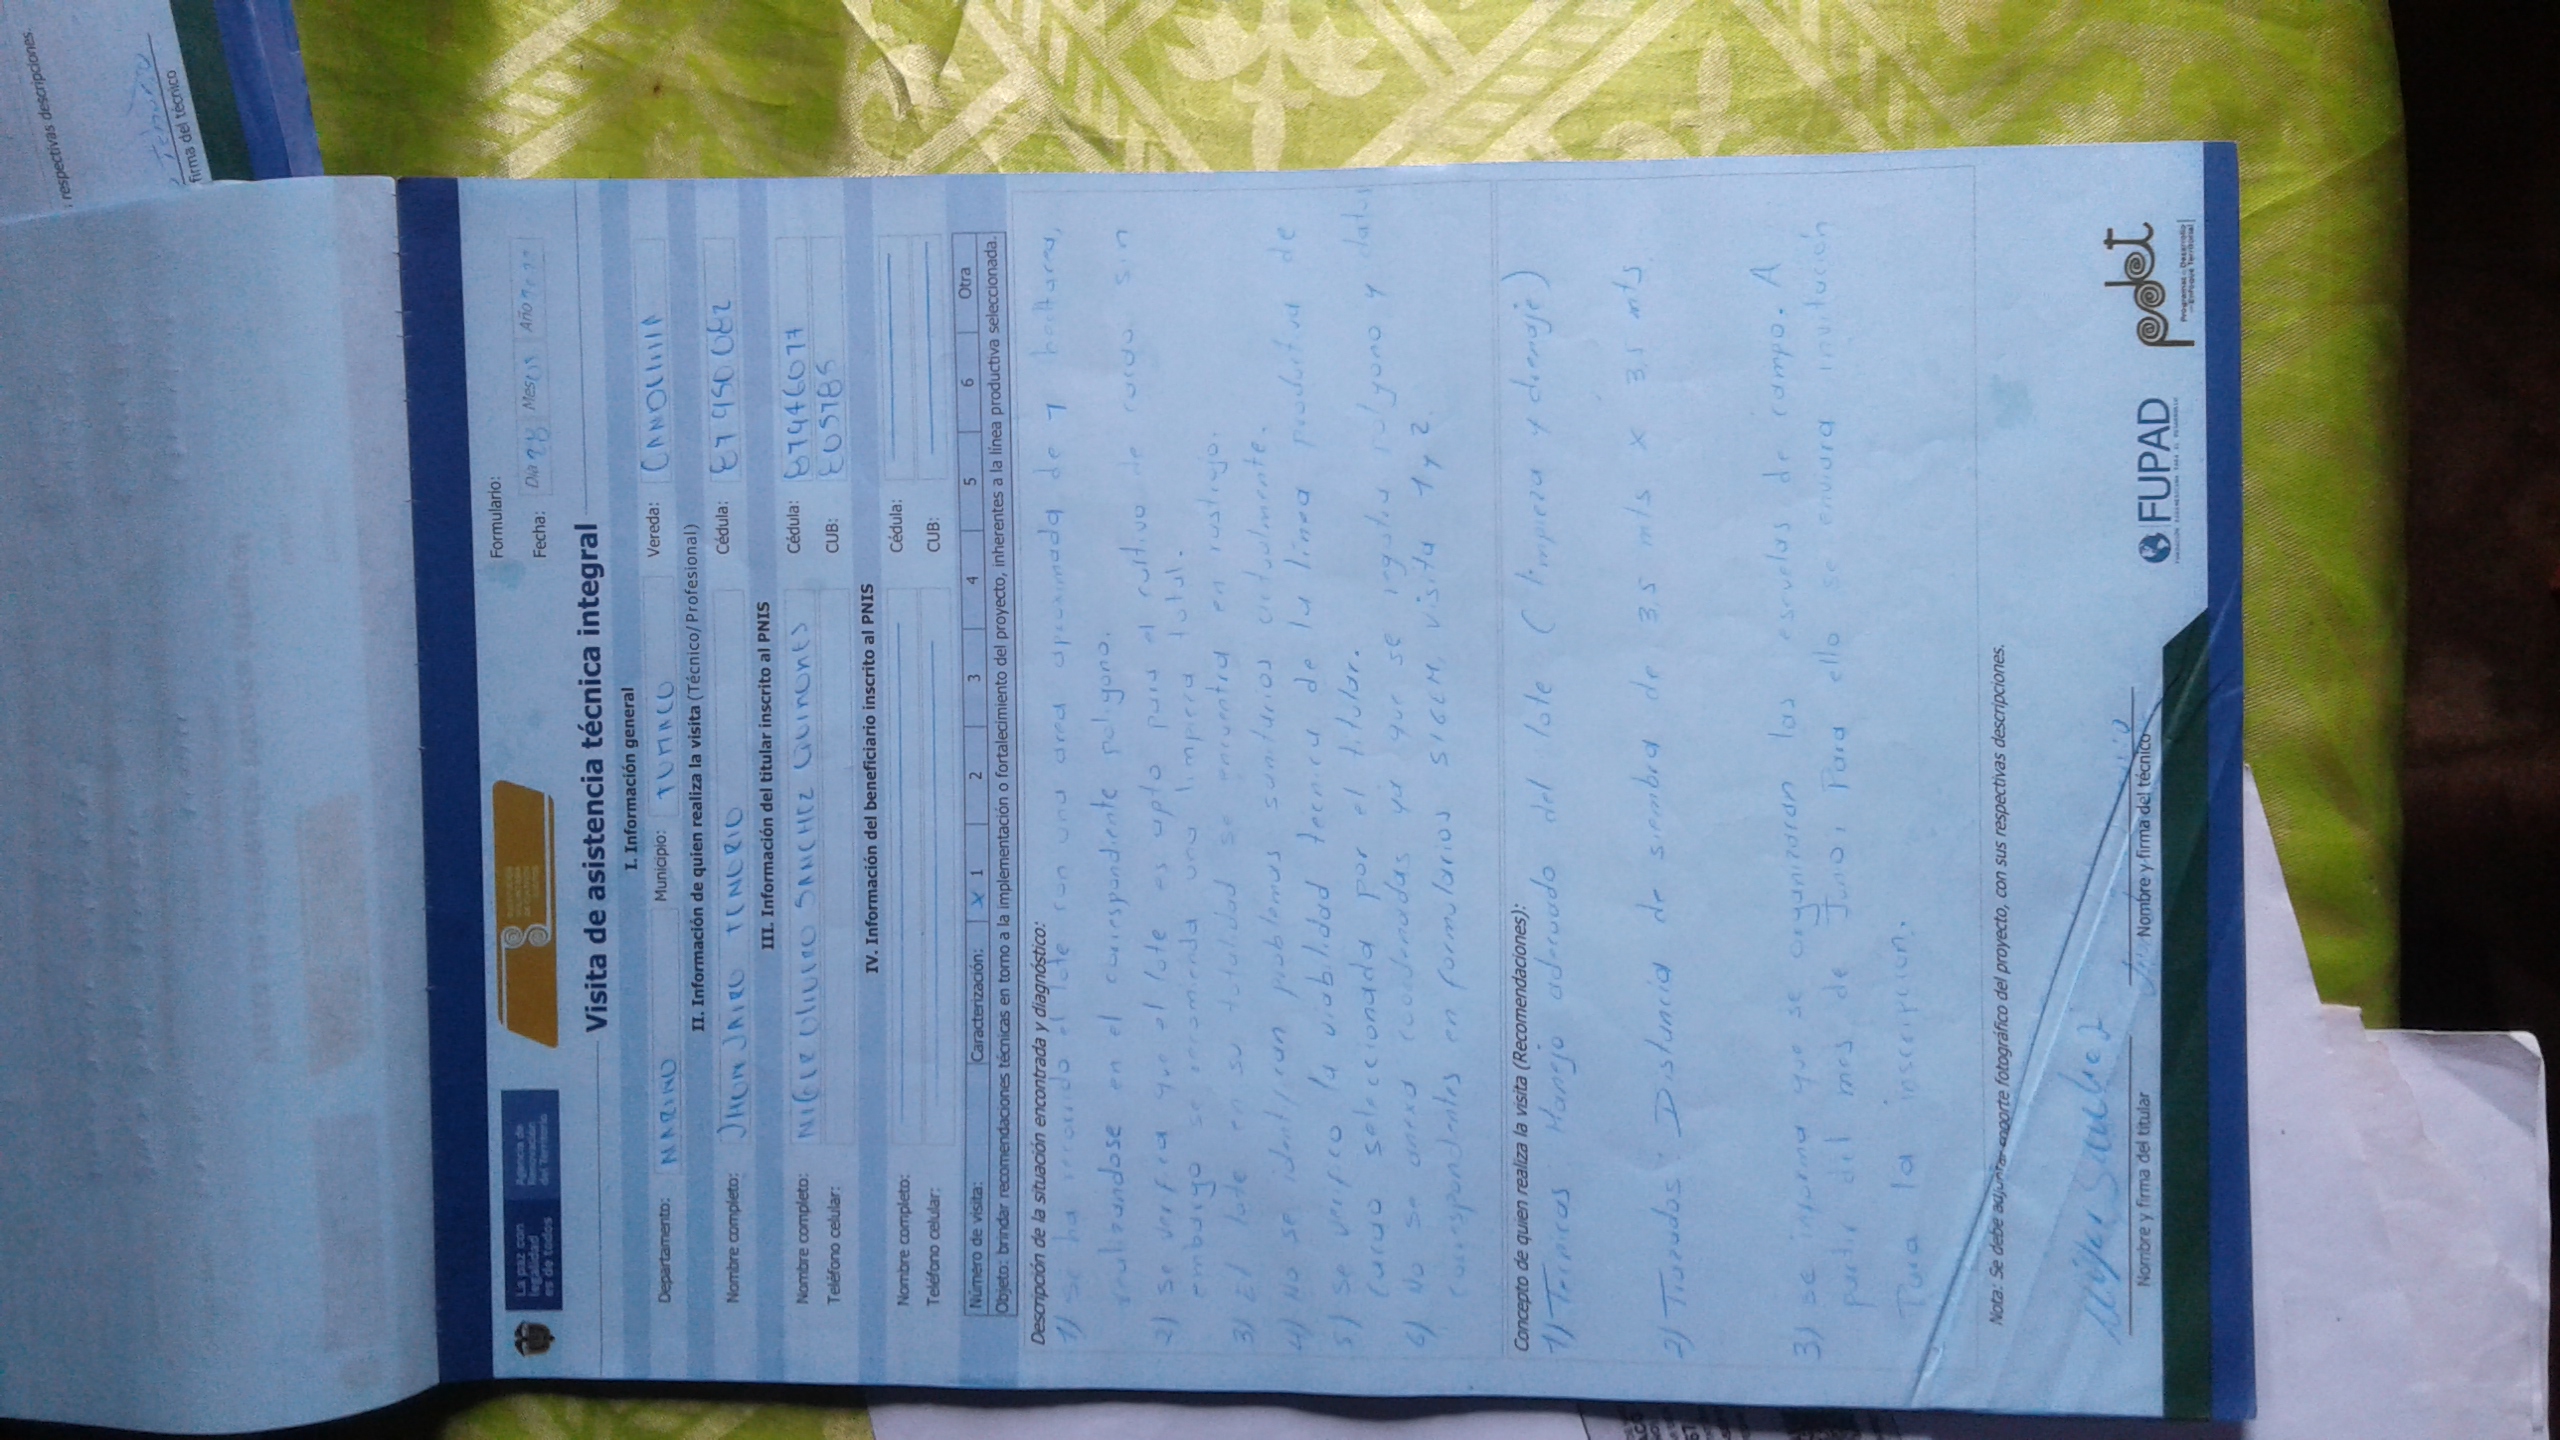 respectivas descripciones.
firma del técnico
La paz con
legalidad
es de todos
Agencia de
Renovación
del Territorio
Formulario:
Fecha: Día 28 Mes Año
Visita de asistencia técnica integral
I. Información general
Departamento: NARIÑO Municipio: TUMACO Vereda:
II. Información de quien realiza la visita (Técnico/Profesional)
Nombre completo: JHON JAIRO TENORIO Cédula:
III. Información del titular inscrito al PNIS
Nombre completo: SANCHEZ QUIÑONES Cédula:
Teléfono celular: CUB:
IV. Información del beneficiario inscrito al PNIS
Nombre completo: Cédula:
Teléfono celular: CUB:
Número de visita: Caracterización: X 1 2 3 4 5 6 Otra
Objeto: brindar recomendaciones técnicas en torno a la implementación o fortalecimiento del proyecto, inherentes a la línea productiva seleccionada.
Descripción de la situación encontrada y diagnóstico:
1) se ha recorrido el lote con una area aproximada de 1 hectarea,
realizandose en el correspondiente poligono.
2) se verfica que el lote es apto para el cultivo de cacao sin
embargo se recomienda una limpieza total.
3) El lote en su totalidad se encuentra en rastrojo.
4) No se identifican problemas sanitarios actualmente.
5) se verifico la viabilidad tecnica de la linea productiva de
cacao seleccionada por el titular.
6) No se anexa coordenadas ya que se ingresa poligono y datos
correspondientes en formularios SIGCM, visita 1 y 2
Concepto de quien realiza la visita (Recomendaciones):
1) Tecnicas Manejo adecuado del lote (limpieza y drenaje)
2) Trazados: Distancia de siembra de 3.5 mts x 3.5 mts
3) se informa que se organizaran las escuelas de campo. A
partir del mes de Junio, Para ello se enviara invitación
Para la inscripcion.
Nota: Se debe adjuntar reporte fotográfico del proyecto, con sus respectivas descripciones.
Sanchez
Nombre y firma del titular Nombre y firma del técnico
FUPAD
pdet
Programas de Desarrollo
con Enfoque Territorial